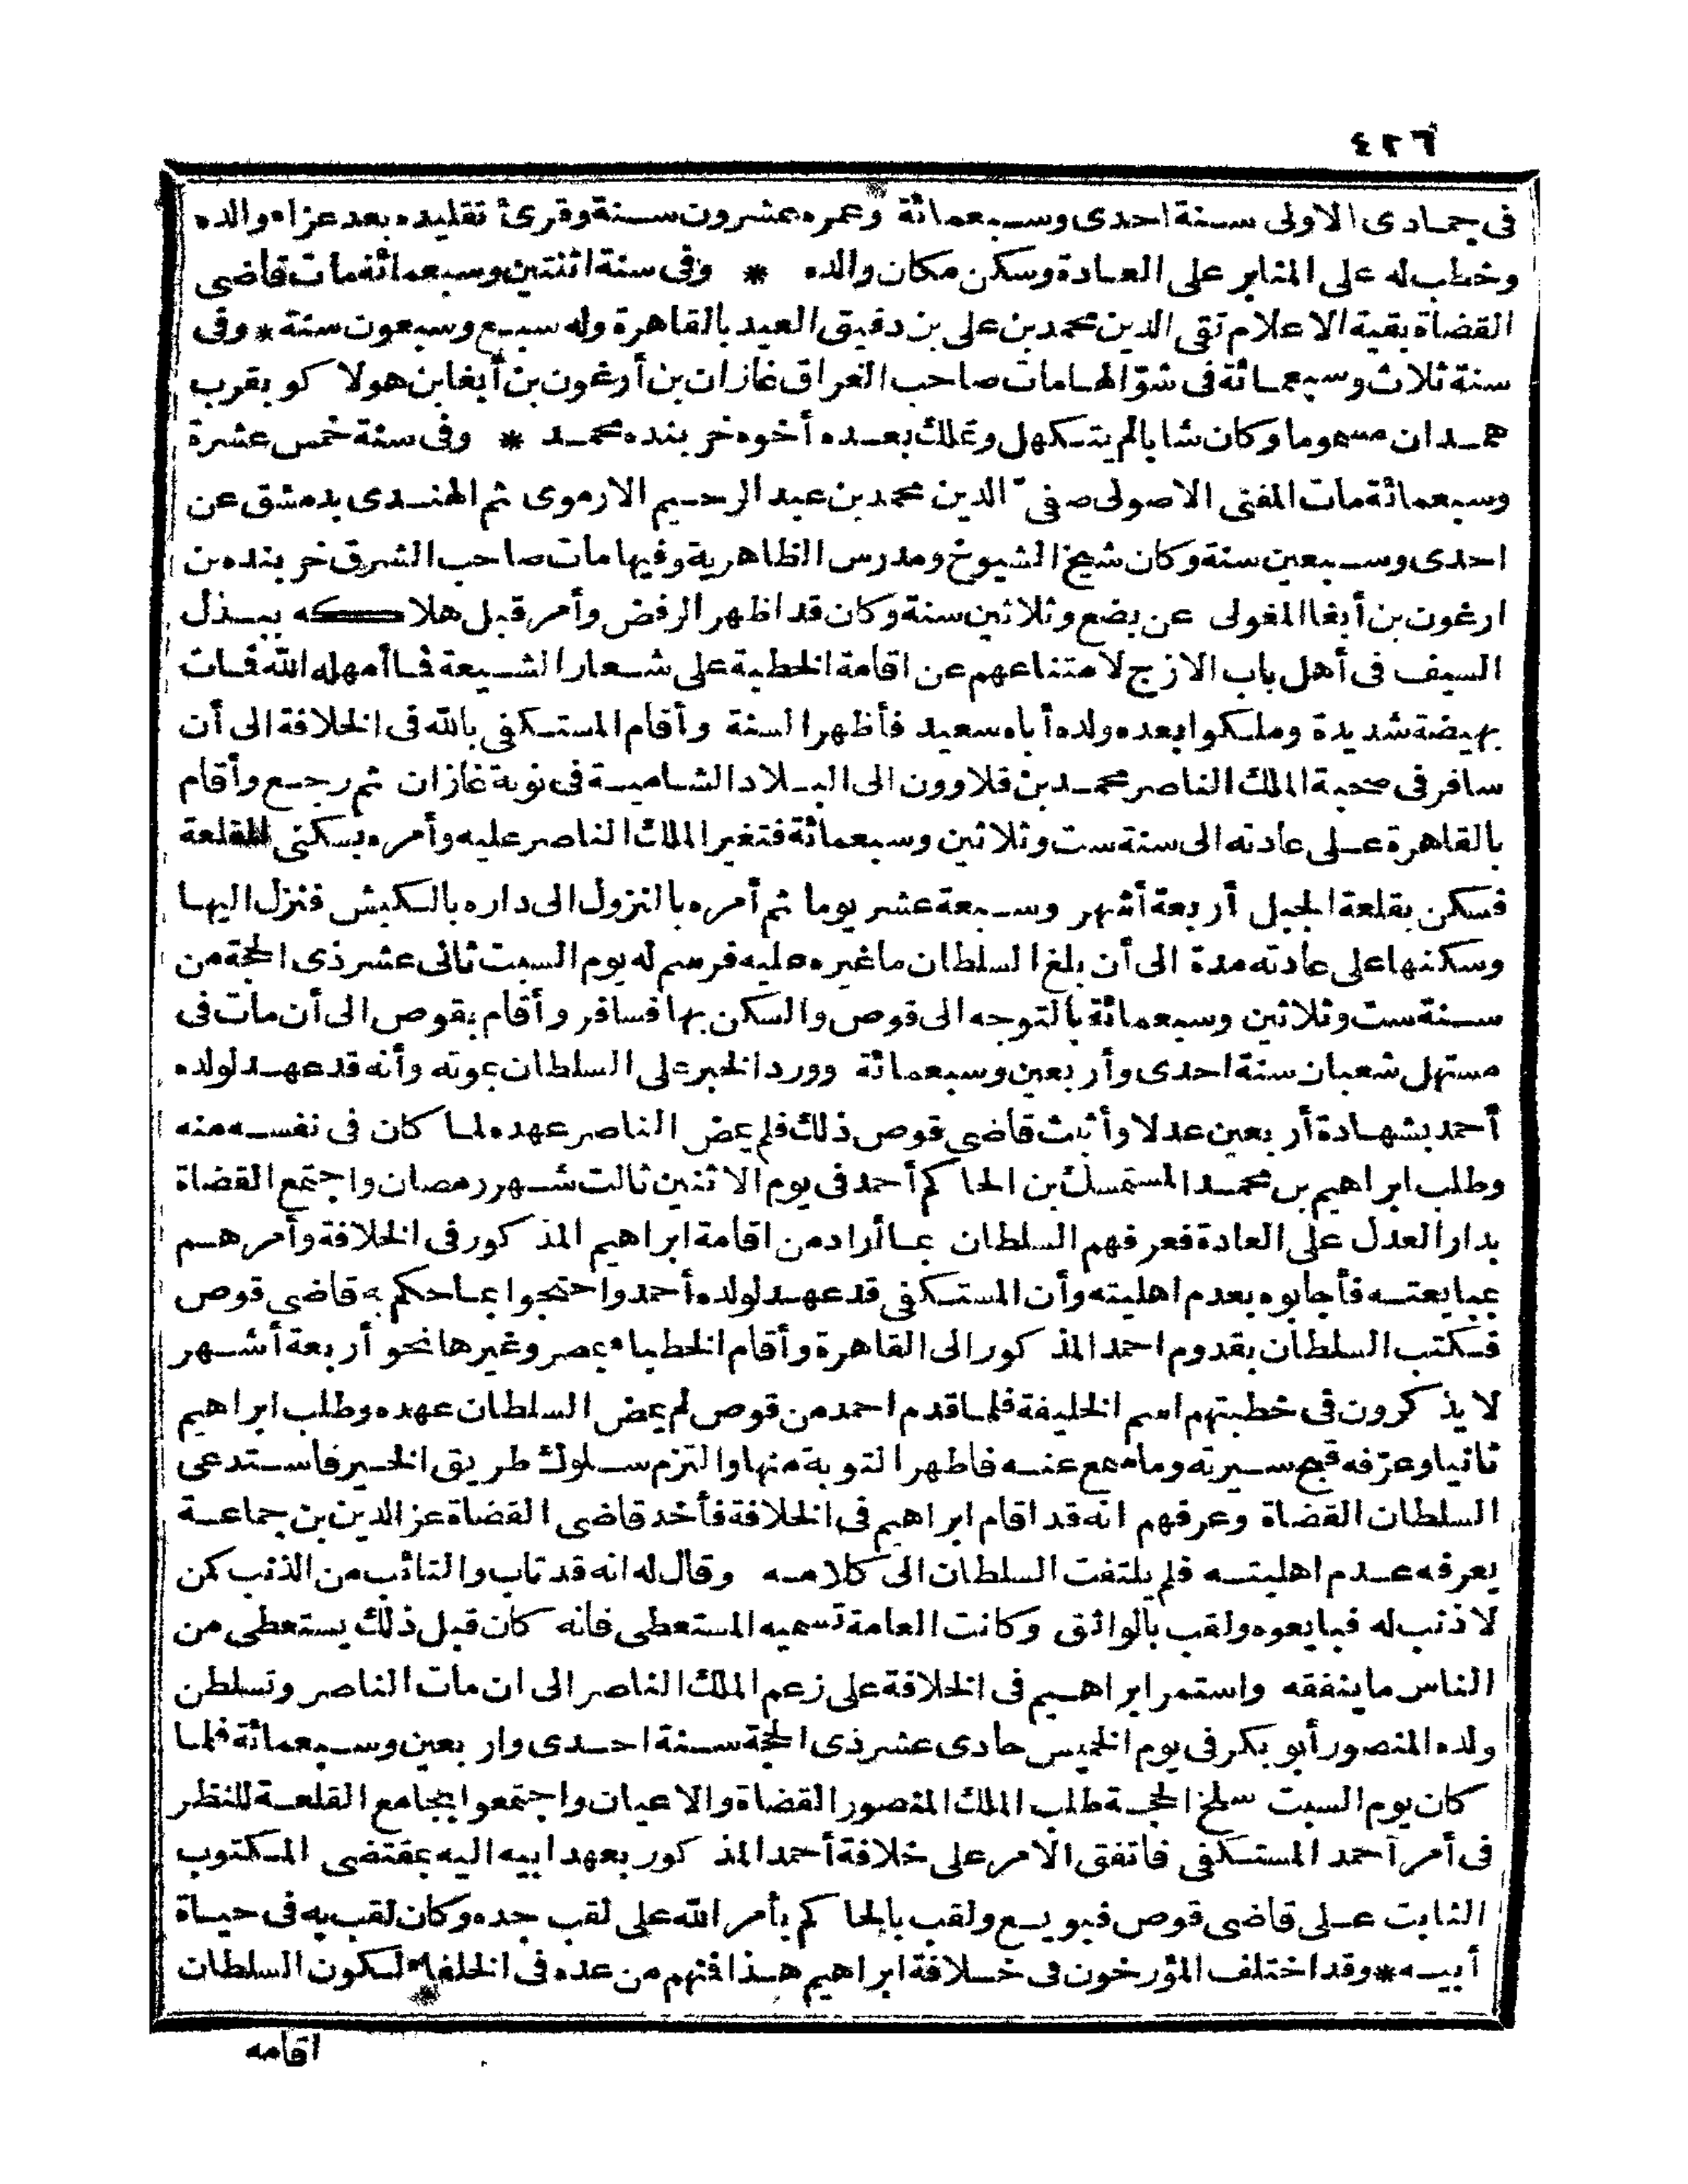 ٤٢٦
فى جمادى الاولى سنة احدى وسبعمائة وعمره عشرون سنة وقرئ تقليده بعد عزاء والده
وخطب له على المنابر على العادة وسكن مكان والده * وفى سنة اثنتين وسبعمائة مات قاضى
القضاة بقية الاعلام تقى الدين محمد بن على بن دقيق العيد بالقاهرة وله سبع وسبعون سنة * وفى
سنة ثلاث وسبعمائة فى شوّالها مات صاحب العراق غازان بن أرغون بن أبغا بن هولا كو بقرب
همدان مسموما وكان شابا لم يتكهل وتملك بعده أخوه خر بنده محمد * وفى سنة خمس عشرة
وسبعمائة مات المفتى الاصولى صفىّ الدين محمد بن عبد الرحيم الارموى ثم الهندى بدمشق عن
احدى وسبعين سنة وكان شيخ الشيوخ ومدرس الظاهرية وفيها مات صاحب الشرق خر بنده بن
ارغون بن أبغا المغولى عن بضع وثلاثين سنة وكان قد اظهر الرفض وأمر قبل هلاكه ببذل
السيف فى أهل باب الازج لامتناعهم عن اقامة الخطبة على شعار الشيعة فما أمهله الله فمات
بهيضة شديدة وملكوا بعده ولده أباه سعيد فأظهر السنة وأقام المستكفى بالله فى الخلافة الى أن
سافر فى صحبة الملك الناصر محمد بن قلاوون الى البلاد الشامية فى نوبة غازان ثم رجع وأقام
بالقاهرة على عادته الى سنة ست وثلاثين وسبعمائة فتغير الملك الناصر عليه وأمره بسكنى القلعة
فسكن بقلعة الجبل أربعة أشهر وسبعة عشر يوما ثم أمره بالنزول الى داره بالكبش فنزل اليها
وسكنها على عادته مدة الى أن بلغ السلطان ما غيره عليه فرسم له يوم السبت ثانى عشر ذى الحجة من
سنة ست وثلاثين وسبعمائة بالتوجه الى قوص والسكن بها فسافر وأقام بقوص الى أن مات فى
مستهل شعبان سنة احدى وأربعين وسبعمائة وورد الخبر على السلطان بموته وأنه قد عهد لولده
أحمد بشهادة أربعين عدلا وأثبت قاضى قوص ذلك فلم يمض الناصر عهده لما كان فى نفسه منه
وطلب ابراهيم بن محمد المستمسك بن الحاكم أحمد فى يوم الاثنين ثالث شهر رمضان واجتمع القضاة
بدار العدل على العادة فعرفهم السلطان بما أراد من اقامة ابراهيم المذكور فى الخلافة وأمرهم
بمبايعته فأجابوه بعدم اهليته وأن المستكفى قد عهد لولده أحمد واحتجوا بما حكم به قاضى قوص
فكتب السلطان بقدوم احمد المذكور الى القاهرة وأقام الخطباء بمصر وغيرها نحو أربعة أشهر
لا يذكرون فى خطبتهم اسم الخليفة فلما قدم احمد من قوص لم يمض السلطان عهده وطلب ابراهيم
ثانيا وعرّفه قبح سيرته وما سمع عنه فاظهر التوبة منها والتزم سلوك طريق الخير فاستدعى
السلطان القضاة وعرفهم انه قد اقام ابراهيم فى الخلافة فأخذ قاضى القضاة عز الدين بن جماعة
يعرفه عدم اهليته فلم يلتفت السلطان الى كلامه وقال له انه قد تاب والتائب من الذنب كمن
لا ذنب له فبايعوه ولقب بالواثق وكانت العامة تسميه المستعطى فانه كان قبل ذلك يستعطى من
الناس ما ينفقه واستمر ابراهيم فى الخلافة على زعم الملك الناصر الى ان مات الناصر وتسلطن
ولده المنصور أبو بكر فى يوم الخميس حادى عشر ذى الحجة سنة احدى واربعين وسبعمائة فلما
كان يوم السبت سلخ الحجة طلب الملك المنصور القضاة والاعيان واجتمعوا بجامع القلعة للنظر
فى أمر أحمد المستكفى فاتفق الامر على خلافة أحمد المذكور بعهد ابيه اليه بمقتضى المكتوب
الثابت على قاضى قوص فبويع ولقب بالحاكم بأمر الله على لقب جده وكان لقب به فى حياة
أبيه * وقد اختلف المؤرخون فى خلافة ابراهيم هذا فنهم من عده فى الخلفاء لكون السلطان
اقامه